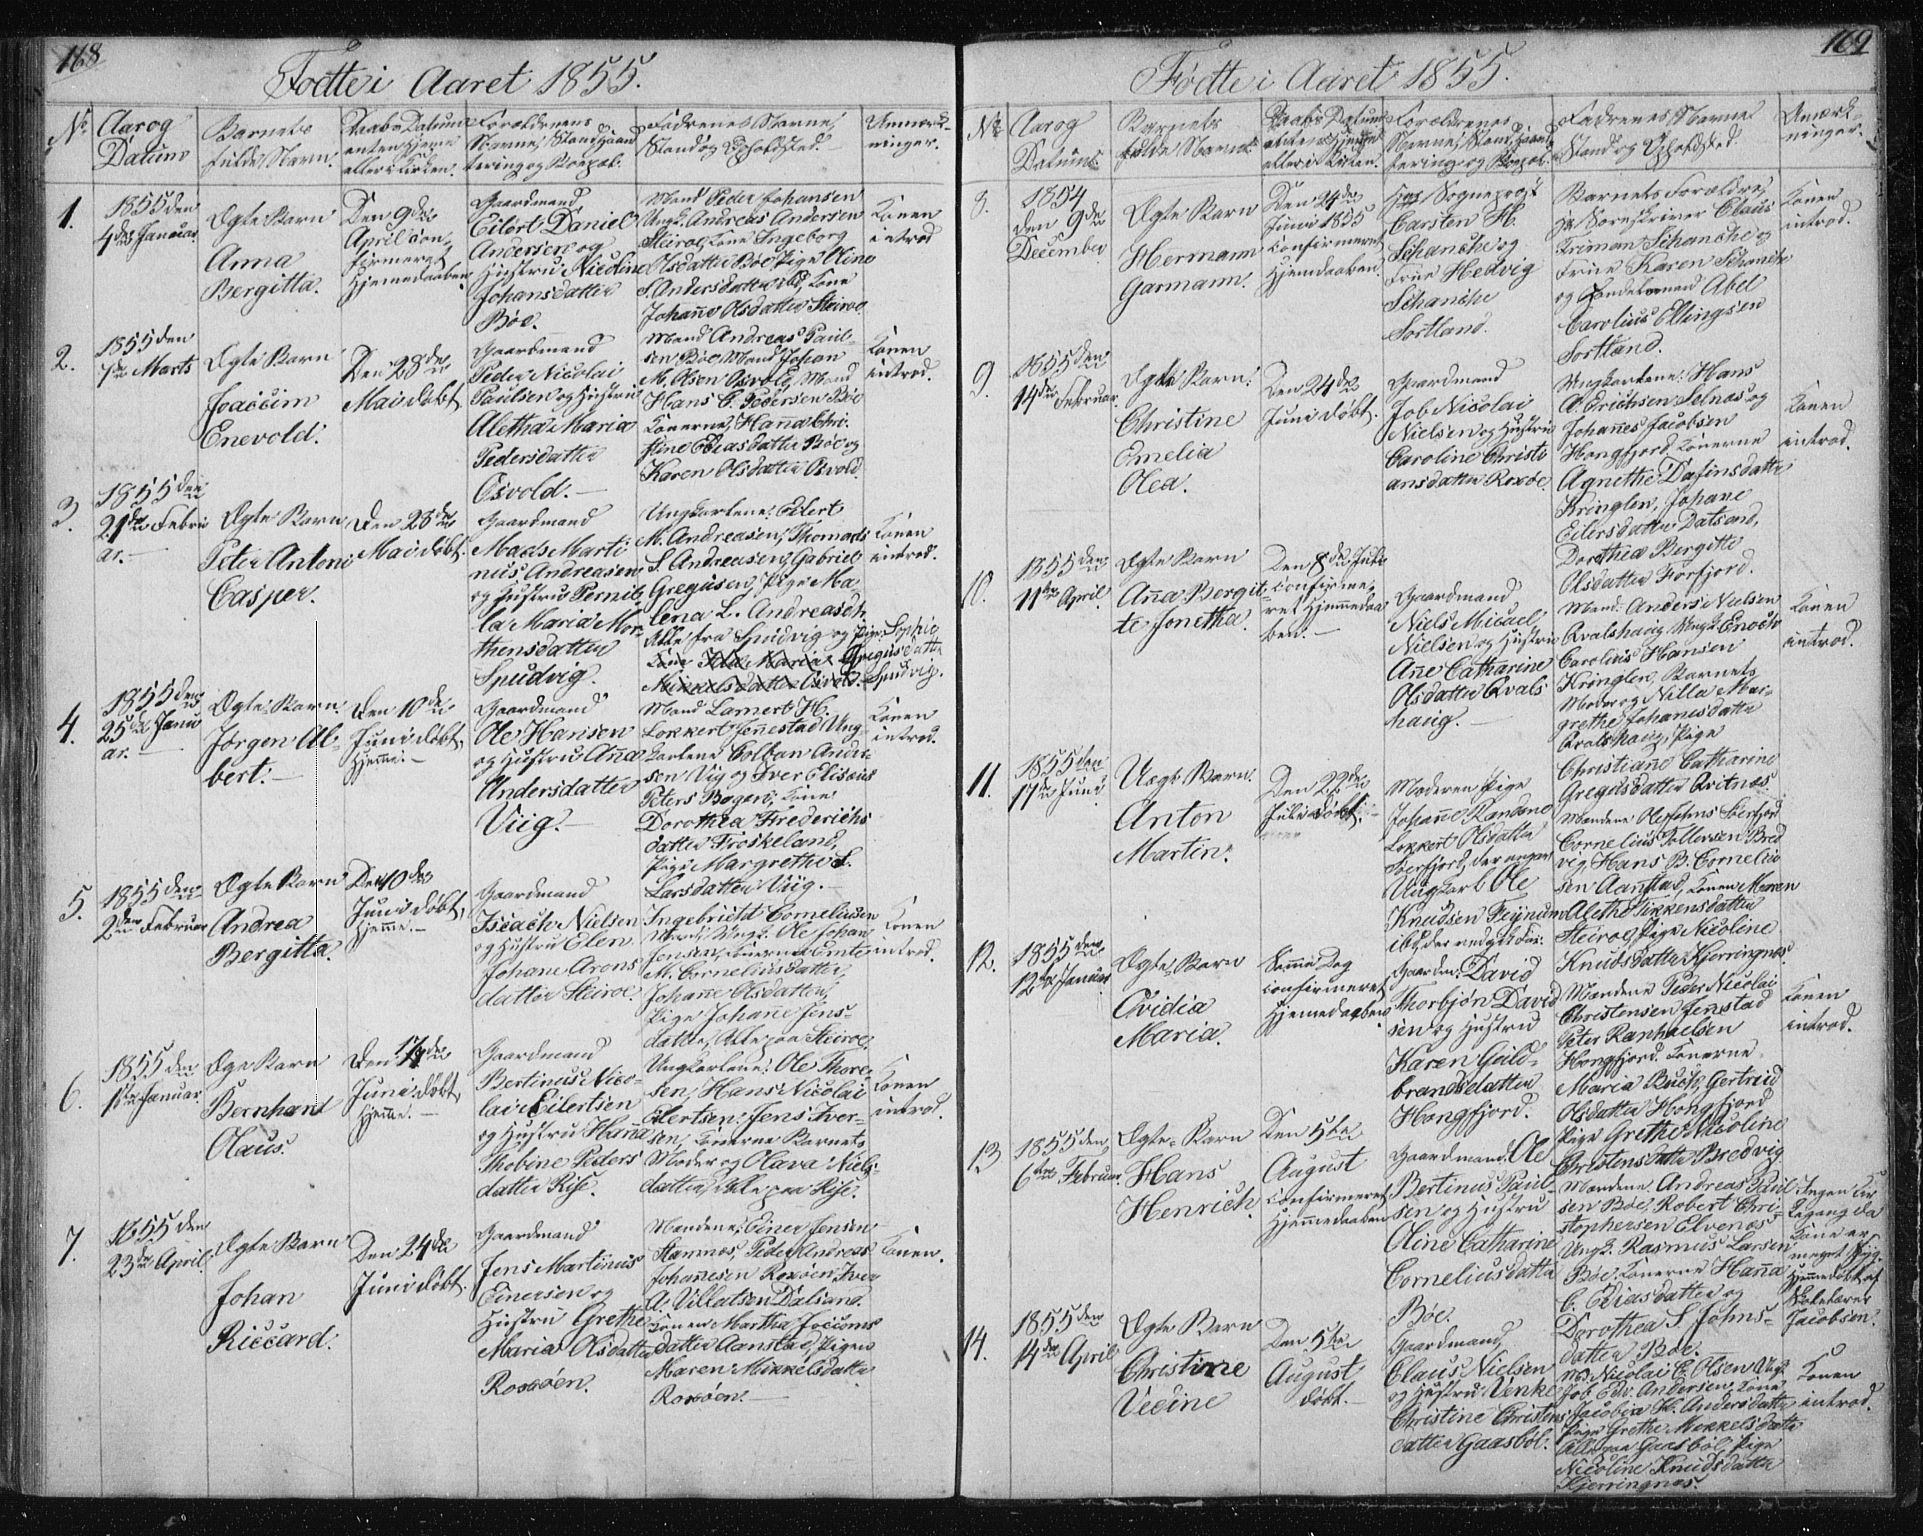 168
Fødte i Aaret 1855.
No
Aar og
Datum
Barnets
fulde Navn.
Daabs Datum
enten hjemme
eller i Kirken.
Forældrenes
Navne, Stand, Haand-
tering og Boepæl.
Fadrenes Navne,
Stand og Opholdsted.
Anmærk-
ninger.
1.
1855 den
4de Januar
Ægte Barn
Anna
Bergitta.
Den 9de
April con-
firmeret
Hjemedaaben.
Gaardmand
Eilert Daniel
Andersen og
Hustru Nicoline
Johansdatter
Böe.
Mand Peder Johansen
Ungk. Andreas Andersen
Steiroe, Kone Ingeborg
Olsdatter Böe Pige Oline
S. Andersdatter ibd, Kone
Johanne Olsdatter Steiroe
Konen
introd
2.
1855 den
7de Marts
Ægte Barn
Joacim
Enevold.
Den 28de
Mai døbt
Gaardmand
Peder Nicolai
Paulsen og Hustru
Aletha Maria
Pedersdatter
Osvold.
Mand Andreas Paul-
sen Böe Mand Johan
M. Olsen Osvold, Mand
Hans C. Pedersen Böe
Konerne, Hanna Chri-
stine Ediasdatter Böe og
Karen Olsdatter Osvold
Konen
introd.
3.
1855 den
21de Febru
ar.
Ægte Barn
Peter Antoni
Casper.
Den 28de
Mai døbt.
Gaardmand
Mads Marti
nus Andreasen
og Hustru Pernil-
la Maria Mor-
thensdatter
Spudvig.
Ungkarlene: Eilert
M. Andreasen, Thomas
S. Andreasen, Gabriel
Gregusen, Pige Ma-
lena L. Andreasdtr.
Alle fra Spudvig og Pige Sophie
Gregusdatter
Spudvig.
Konen
introd.
4.
1855 den
25de Janu
ar.
Ægte Barn.
Jørgen Al-
bert.
Den 10de
Juni døbt,
hjemme.
Gaardmand
Ole Hansen
og Hustru Anna
Andersdatter
Viig.
Mand Lamert H.
Lokkert Jennestad, Ung-
karlene Colban Ander-
sen Vig og Iver Elisæus
Peters Bogen, Kone
Dorothea Frederichs
datter Froskeland,
Pige Margrethe L.
Larsdatter Viig.
Konen
introd.
5.
1855 den
2den Februar
Ægte Barn
Andrea
Bergitta.
Den 10de
Juni døbt,
hjemme.
Gaardmand
Iscach Nielsen
og Hustru Elen
Johane Arons
datter Steiroe.
Ingebricht Corneliusen
Mand, Ungk. Ole Johan
Jensen, Konerne Emte
M. Corneliusdatter,
Johanne Olsdatter,
Pige Johane Jens-
datter, Alle paa Steiroe.
Konen
introd.
6.
1855 den
1ste Januar.
Ægte Barn
Bernhard
Olaus.
Den 17de
Juni døbt,
hjemme.
Gaardmand
Bertinus Nico-
lai Eilertsen
og Hustru Hanna
Thobine Peders
datter Rise.
Ungkarlene: Ole Thore-
sen, Hans Nicolai
Eilertsen: Jens Iver-
sen, Konerne Barnets
Moder og Olava Niels-
datter, Alle paa Rise.
Konen
introd.
7.
1855 den
23de April
Ægte Barn
Johan
Riccard.
Den 24de
Juni døbt.
Gaardmand
Jens Martinus
Einersen og
Hustru Grethe
Maria Olsdatter
Roxøen.
Mændene: Einer Jensen
Stamnes, Peder Andreas
Johannesen Roxøen, Iver
A. Villatsen Dalsand.
Konen Martha Jocums
datter Aanstad, Pigen
Maren Mikkelsdatter
Roxøen.
Konen.
169
Fødte i Aaret 1855.
No
Aar og
Datum
Barnets
fulde Navn
Daabs Datum
enten hjemme
eller i Kirken.
Forældrenes
Navne, Stand, Haand-
tering og Boepæl.
Fadrenes Navne
Stand og Opholdsted.
Anmærk-
ninger.
8.
1854
den 9de
December
Ægte Barn
Hermann
Garmann.
Den 24de
Juni 1855
confirmeret
Hjemdaaben.
Hr Sogneprest
Carsten H.
Schanche og
Frue Hedvig
Schanche
Sortland.
Barnets Forældre,
Sorenskriver Claus
Schanche og
Frue Karen Schanche
og Handelsmand Abel
Carolius Ellingsen
Sortland.
Konen
introd.
9.
1855 den
14de Februar
Ægte Barn.
Christine
Emelia
Olea.
Den 24de
Juni døbt.
Gaardmand
Job Nicolai
Nielsen og Hustru
Caroline Christi
ansdatter Roxøe.
Ungkarlene: Hans
A. Erichsen Selnæs og
Johannes Jacobsen
Hongfjord Konerne
Agnethe Dafinsdatter
Kringlen, Johane
Eilersdatter Datsand,
Dorothea Bergitte
Olsdatter Forfjord.
Konen
introd.
10.
1855 den
11te April
Ægte Barn
Anna Bergit-
te Jonetha.
Den 8de Juli
confirme-
ret Hjemmedaa-
ben.
Gaardmand
Niels Micael
Nielsen og Hustru
Ane Catharine
Olsdatter Kvals
haug.
Mand: Anders Nielsen
Kvalshaug Ungk. Enoch
Carolius Hansen
Kringlen, Barnets
Moder og Nilla Mar-
grethe Johanesdatter
Kvalshaug, Pige
Christiane Catharine
Gregusdatter Kvitnæs.
Konen
introd.
11.
1855 den
17de Juni
Uægte Barn.
Anton
Martin.
Den 22de
Juli døbt.
Moderen Pige
Johanne Randine
Lokkert Olsdatter
Soerfjord, der angav
Ungkarl Ole
Knudsen Fejnum
ibd, der vedgik Far.
Mændene Ole Johns Soerfjord
Cornelius Tollersen Bred
vig, Hans B. Corneliu
sen Aanstad, Konen Maren
Alethe Tikkensdatter
Steiroe, Pige Nicoline
Knudsdatter Kjerringnæs.
12.
1855 den
12te Januar
Ægte Barn
Ovidia
Maria.
Samme Dag
confirmeret
Hjemmedaaben
Gaardm: David
Thorbjön David
sen og Hustru
Karen Guld-
brandsdatter
Hongfjord.
Mændene Peder Nicolai
Christensen Jennestad
Peter Ranhaelsen
Hongfjord. Konerne
Maria Buck, Gertrud
Olsdatter Hongfjord
Pige Grethe Nicoline
Christensdatter Bredvig
Konen
introd.
13
1855 den
6te Februar
Ægte Barn
Hans
Henrich.
Den 5te
August
confirmeret
Hjemmedaaben
Gaardmand, Ole
Bertinus Paul-
sen og Hustru
Oline Catharine
Corneliusdatter
Böe.
Mændene: Andreas Paul
sen Böe, Robert Chri-
stophersen Elvenæs
Ungk. Rasmus Larsen
Böe. Konerne Hanna
C. Ediasdatter og
Dorothea S. Johns-
datter Böe.
Ingen Kir-
kegang da
Kone er
meget syg.
Hjemmedøbt af
Skolelærer
Jacobsen.
14.
1855 den
14de April
Ægte Barn
Christine
Vecine
Den 5te
August
døbt.
Gaardmand
Claus Nielsen
og Hustru Venke
Christine Christens
datter Gaasböl.
Md. Nicolai C. Olsen Ungk.
Job Edv. Andersen, Kone
Jacobia H. Andersdatter
Pige Grethe Mekkelsdatter
Alle paa Gaasböl, Pige
Nicoline Knudsdatter
Kjerringnæs.
Konen
introd.